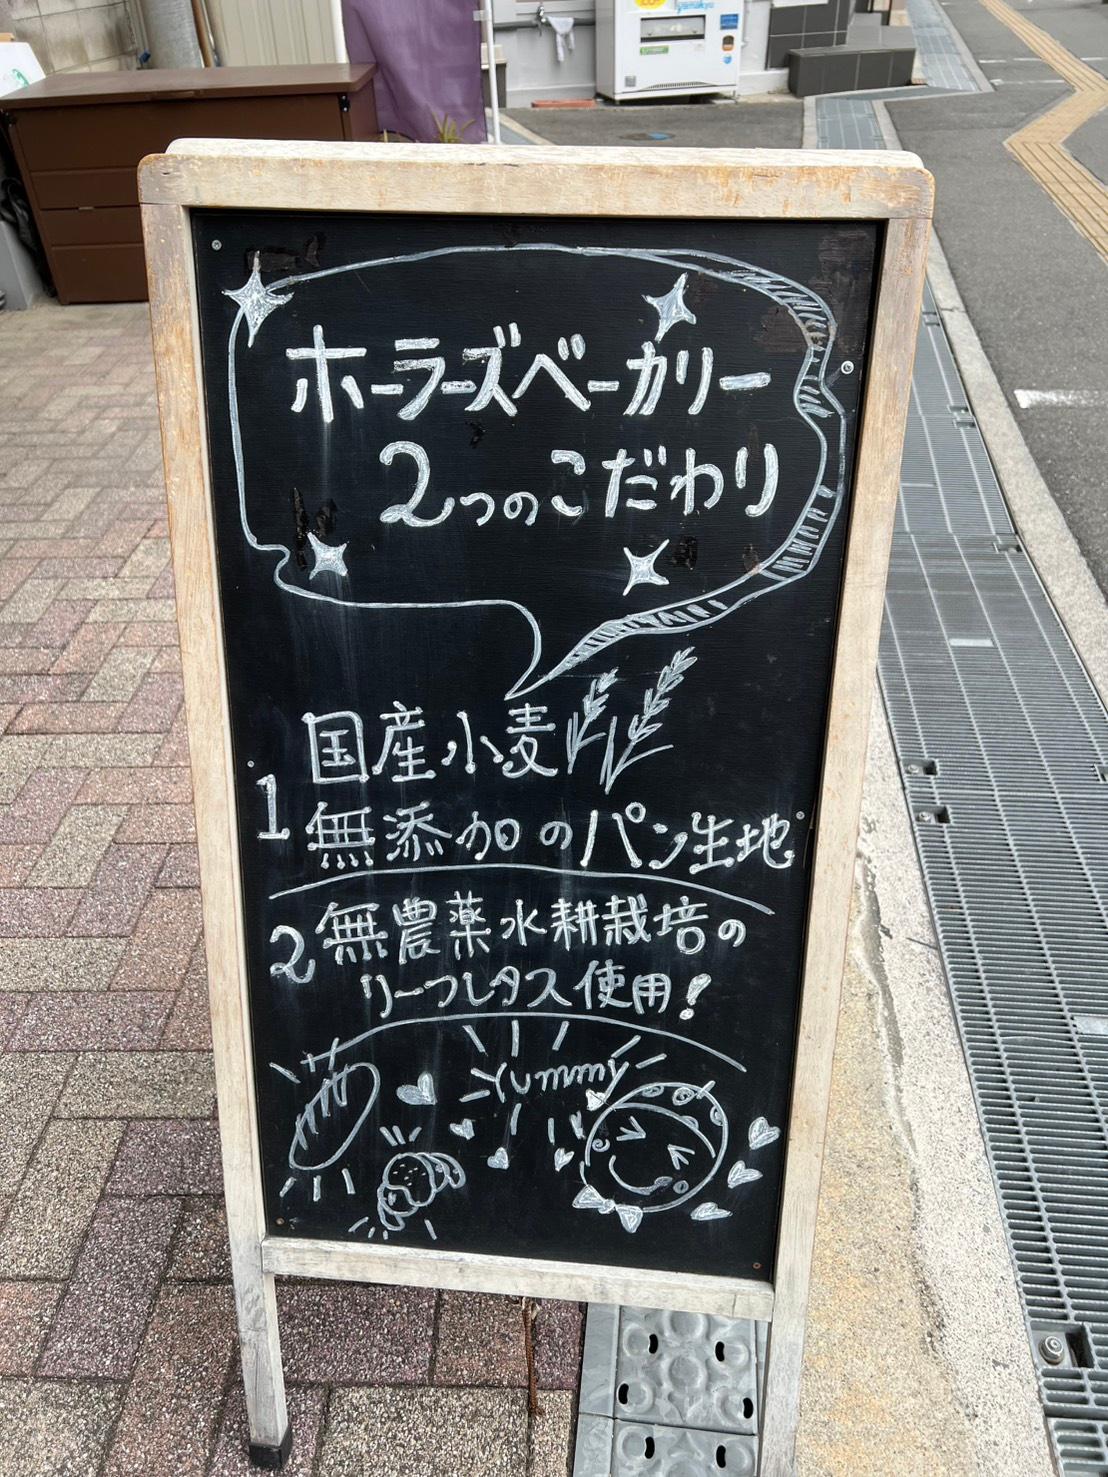 ホーラーズベーカリー
2つのこだわり
1 国産小麦
無添加のパン生地
2 無農薬水耕栽培の
リーフレタス使用!
Yummy